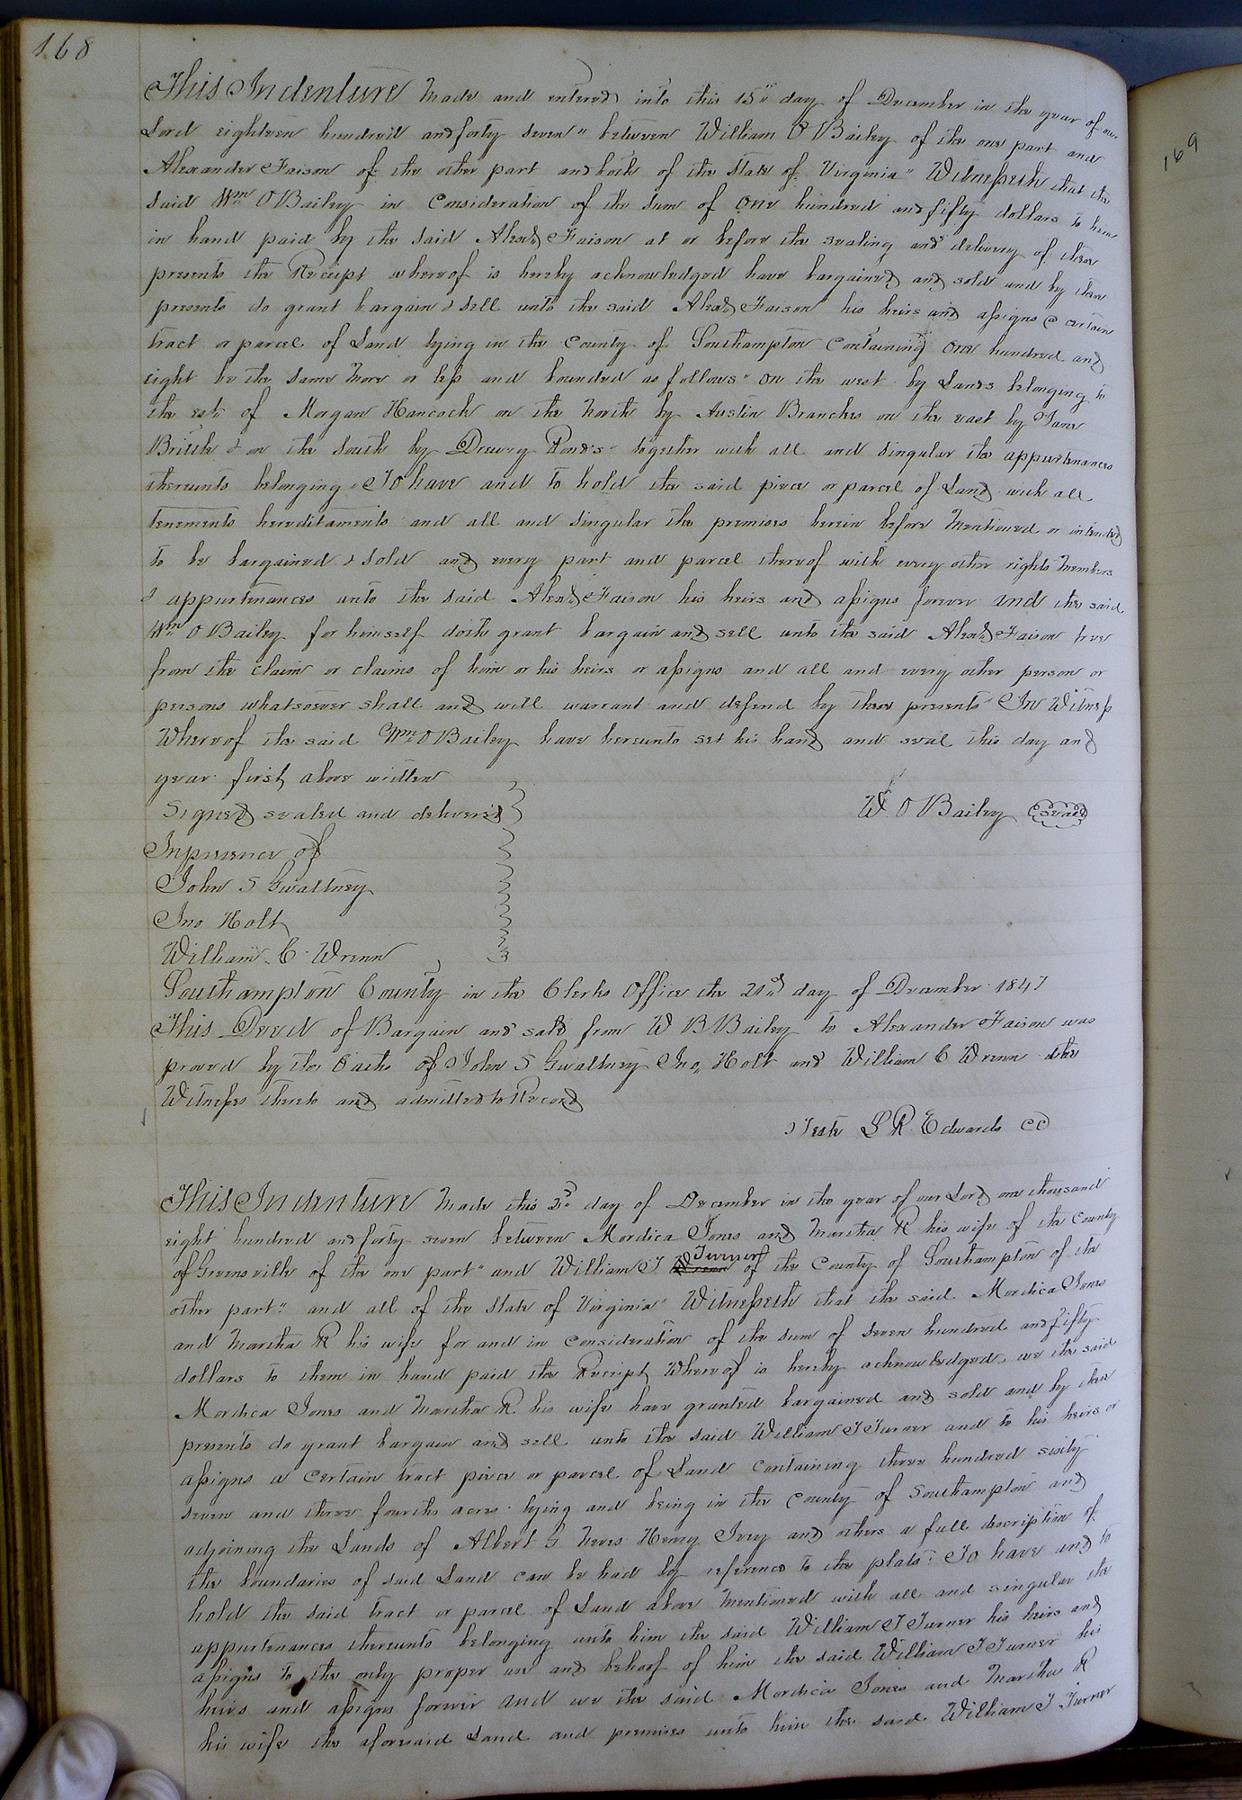 168
This Indenture Made and entered into this 15th day of December in the year of our
Lord eighteen hundred and forty seven" between William O Bailey of the one part and
Alexander Faison of the other part and both of the State of Virginia" Witnesseth that the
said Wm O Bailey in Consideration of the Sum of One hundred and fifty dollars to him
in hand paid by the said Alexd Faison at or before the sealing and delivery of these
presents the Receipt whereof is hereby acknowledged have bargained and sold and by these
presents do grant bargain & sell unto the said Alexd Faison his heirs and assigns a certain
tract or parcel of Land lying in the County of Southampton Containing One hundred and
eight be the same more or less and bounded as follows" On the west by Lands belonging to
the est. of Morgan Hancock on the North by Austin Branches on the east by Jane
Brittle & on the South by Drewry Ponds" together with all and singular the appurtenances
thereunto belonging To have and to hold the said piece or parcel of Land with all
tenements hereditaments and all and singular the premises herein before Mentioned or intended
to be bargained & Sold and every part and parcel thereof with every other rights Members
& appurtenances unto the said Alexd Faison his heirs and assigns forever and the said
Wm O Bailey for himself doth grant bargain and sell unto the said Alexd Faison free
from the claim or claims of him or his heirs or assigns and all and every other person or
persons whatsoever shall and will warrant and defend by these presents" In Witness
Whereof the said Wm O Bailey have hereunto set his hand and seal this day and
year first above written
Signed sealed and delivered
W O Bailey Seal
In presence of
John S Gwaltney
Jno Holt
William C Wrenn
Southampton County in the Clerks Office the 21st day of December 1847
This Deed of Bargain and sale from W B Bailey to Alexander Faison was
proved by the Oaths of John S Gwaltney Jno, Holt and William C Wrenn the
Witnesses thereto and admitted to Record
Teste L R Edwards CC
This Indenture Made this 3d day of December in the year of our Lord one thousand
eight hundred and forty seven between Mordica Jones and Martha R his wife of the County
of Greensville of the one part" and William J Turner of the County of Southampton of the
other part" and all of the State of Virginia" Witnesseth that the said Mordica Jones
and Martha R his wife for and in consideration of the sum of seven hundred and fifty
dollars to them in hand paid the Receipt Whereof is hereby acknowledged, we the said
Mordica Jones and Martha R his wife have granted bargained and sold and by these
presents do grant bargain and sell unto the said William J Turner and to his heirs or
assigns a certain tract piece or parcel of Land Containing three hundred sixty
seven and three fourths acres lying and being in the County of Southampton and
adjoining the Lands of Albert G Neves Henry Ivey and others a full description of
the boundaries of said Land can be had by reference to the plats: To have and to
hold the said tract or parcel of Land above Mentioned with all and singular the
appurtenances thereunto belonging unto him the said William J Turner his heirs and
assigns to the only proper use and behoof of him the said William J Turner his
heirs and assigns forever and we the said Mordica Jones and Martha R
his wife the aforesaid Land and premises unto him the said William J Turner
169